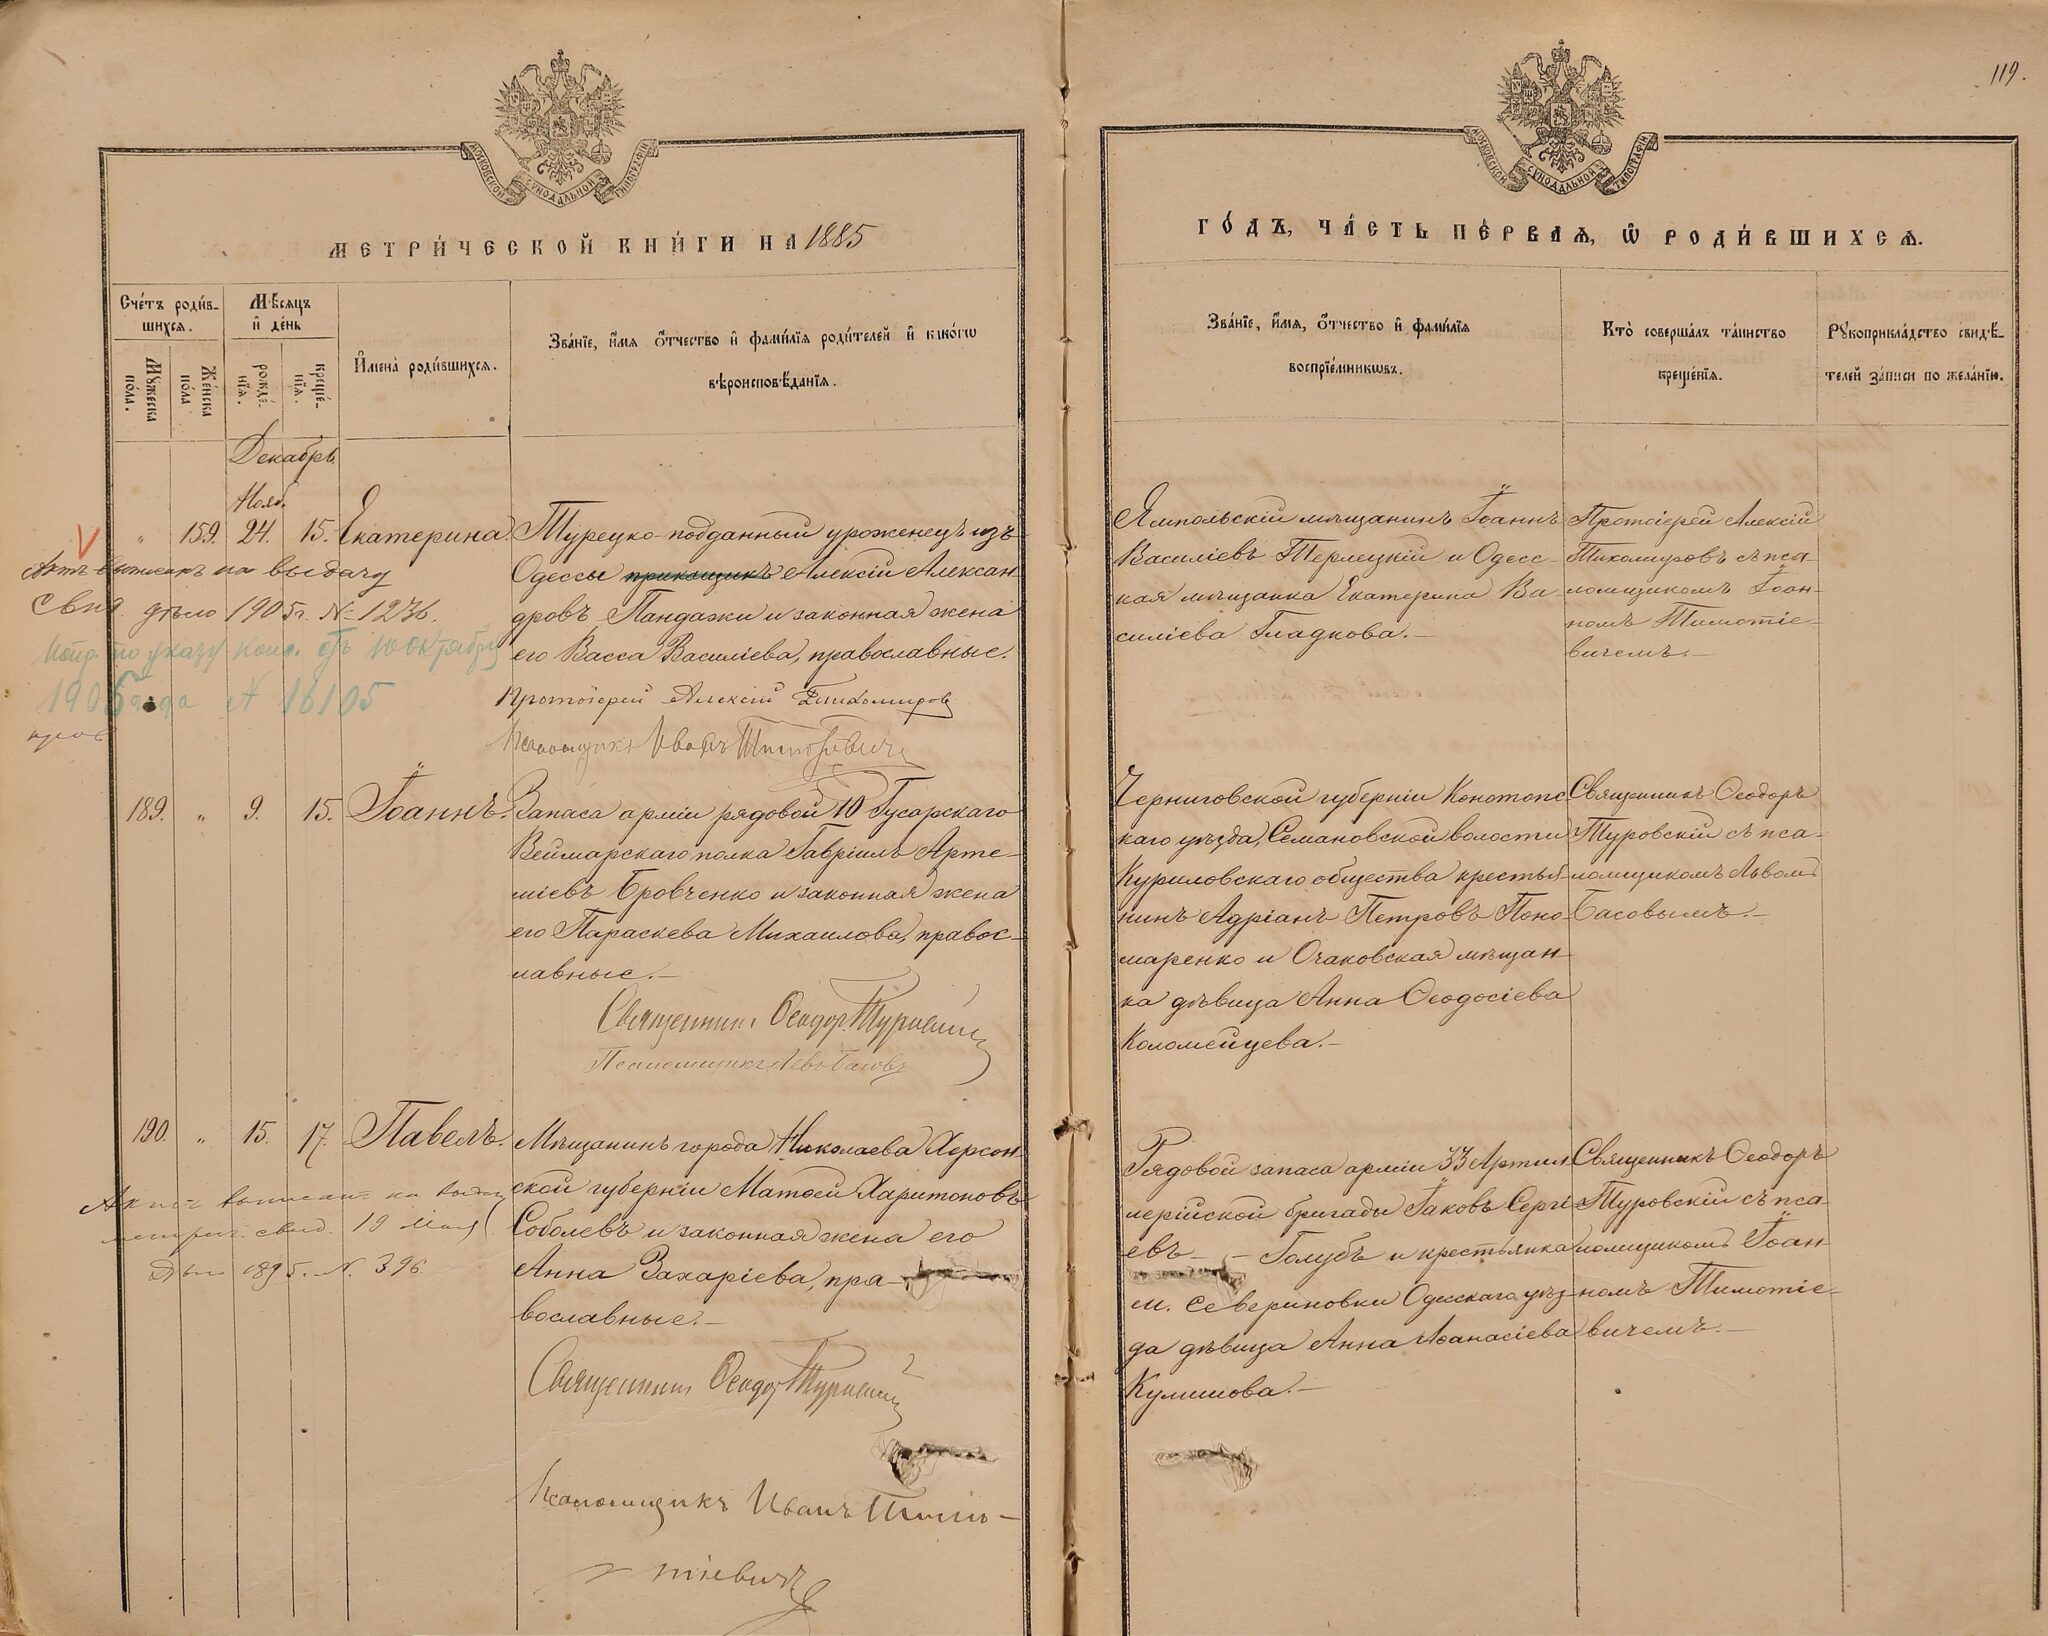 119.
МОСКОВСКОЙ СѴНОДАЛЬНОЙ ТИПОГРАФІИ
МОСКОВСКОЙ СѴНОДАЛЬНОЙ ТИПОГРАФІИ
МЕТРИ́ЧЕСКОЙ КНИ́ГИ НА 1885
ГО́ДЪ, ЧА́СТЬ ПЕ́РВАѦ, Ѡ҆ РОДИ́ВШИХСѦ.
Сче́тъ роди́в-
шихсѧ.
Мѣ́сѧцъ
и҆ де́нь
Мꙋ́жеска
по́ла.
Же́нска
по́ла
рожде́-
нїѧ.
креще́-
нїѧ.
И҆мена̀ роди́вшихсѧ.
Зва́нїе, и҆́мѧ ѻ҆́тчество и҆ фами́лїѧ роди́телей и҆ како́гѡ
вѣроисповѣ́данїѧ.
Зва́нїе, и҆́мѧ, ѻ҆́тчество и҆ фами́лїѧ
воспрїе́мникѡвъ.
Кто̀ соверша́лъ та́инство
креще́нїѧ.
Рꙋкоприкла́дство свидѣ́-
телей за́писи по жела́нїю.
Декабрь
Нояб.
" 159. 24. 15. Екатерина.
Турецко-подданный уроженецъ изъ
Одессы прикащикъ Алексій Алексан-
дровъ Пандази и законная жена
его Васса Василіева, православные.
Протоіерей Алексій Тихомировъ
Псаломщикъ Иванъ Тимофеевичъ
Ямпольскій мѣщанинъ Іоаннъ
Василіевъ Терлецкій и Одесс-
кая мѣщанка Екатерина Ва-
силіева Гладкова.-
Протоіерей Алексій
Тихомировъ съ пса-
ломщикомъ Іоан-
номъ Тимотіе-
вичемъ.-
Актъ выписанъ на выдачу
свид. дѣло 1905 г. № 1236.
по указу конс. отъ 10 октября
1905 года № 16105
189. " 9. 15. Іоаннъ.
Запаса арміи рядовой 10 Гусарскаго
Веймарскаго полка Гавріилъ Арте-
міевъ Бровченко и законная жена
его Параскева Михаилова, правос-
лавные.-
Священникъ Ѳеодоръ Туровскій
Псаломщикъ Левъ Басовъ
Черниговской губерніи Конотопс-
каго уѣзда, Семановской волости
Куриловскаго общества крестья-
нинъ Адріанъ Петровъ Поно-
маренко и Очаковская мѣщан-
ка дѣвица Анна Ѳеодосіева
Коломейцева.-
Священникъ Ѳеодоръ
Туровскій съ пса-
ломщикомъ Львомъ
Басовымъ.-
190. " 15. 17. Павелъ.
Мѣщанинъ города Николаева Херсон-
ской губерніи Матѳей Харитоновъ
Соболевъ и законная жена его
Анна Захаріева, пра-
вославные.-
Священникъ Ѳеодоръ Туровскій
Псаломщикъ Иванъ Тимо-
тіевичъ
Рядовой запаса арміи 33 Артил-
лерійской бригады Іаковъ Сергі-
евъ - - Голубъ и крестьянка
м. Севериновки Одесскаго уѣз-
да дѣвица Анна Аѳанасіева
Кулишова.-
Священникъ Ѳеодоръ
Туровскій съ пса-
ломщикомъ Іоан-
номъ Тимотіе-
вичемъ.-
Актъ выписанъ на выдачу
метрич. свид. 19 Мая
Дѣло 1895 г. № 396